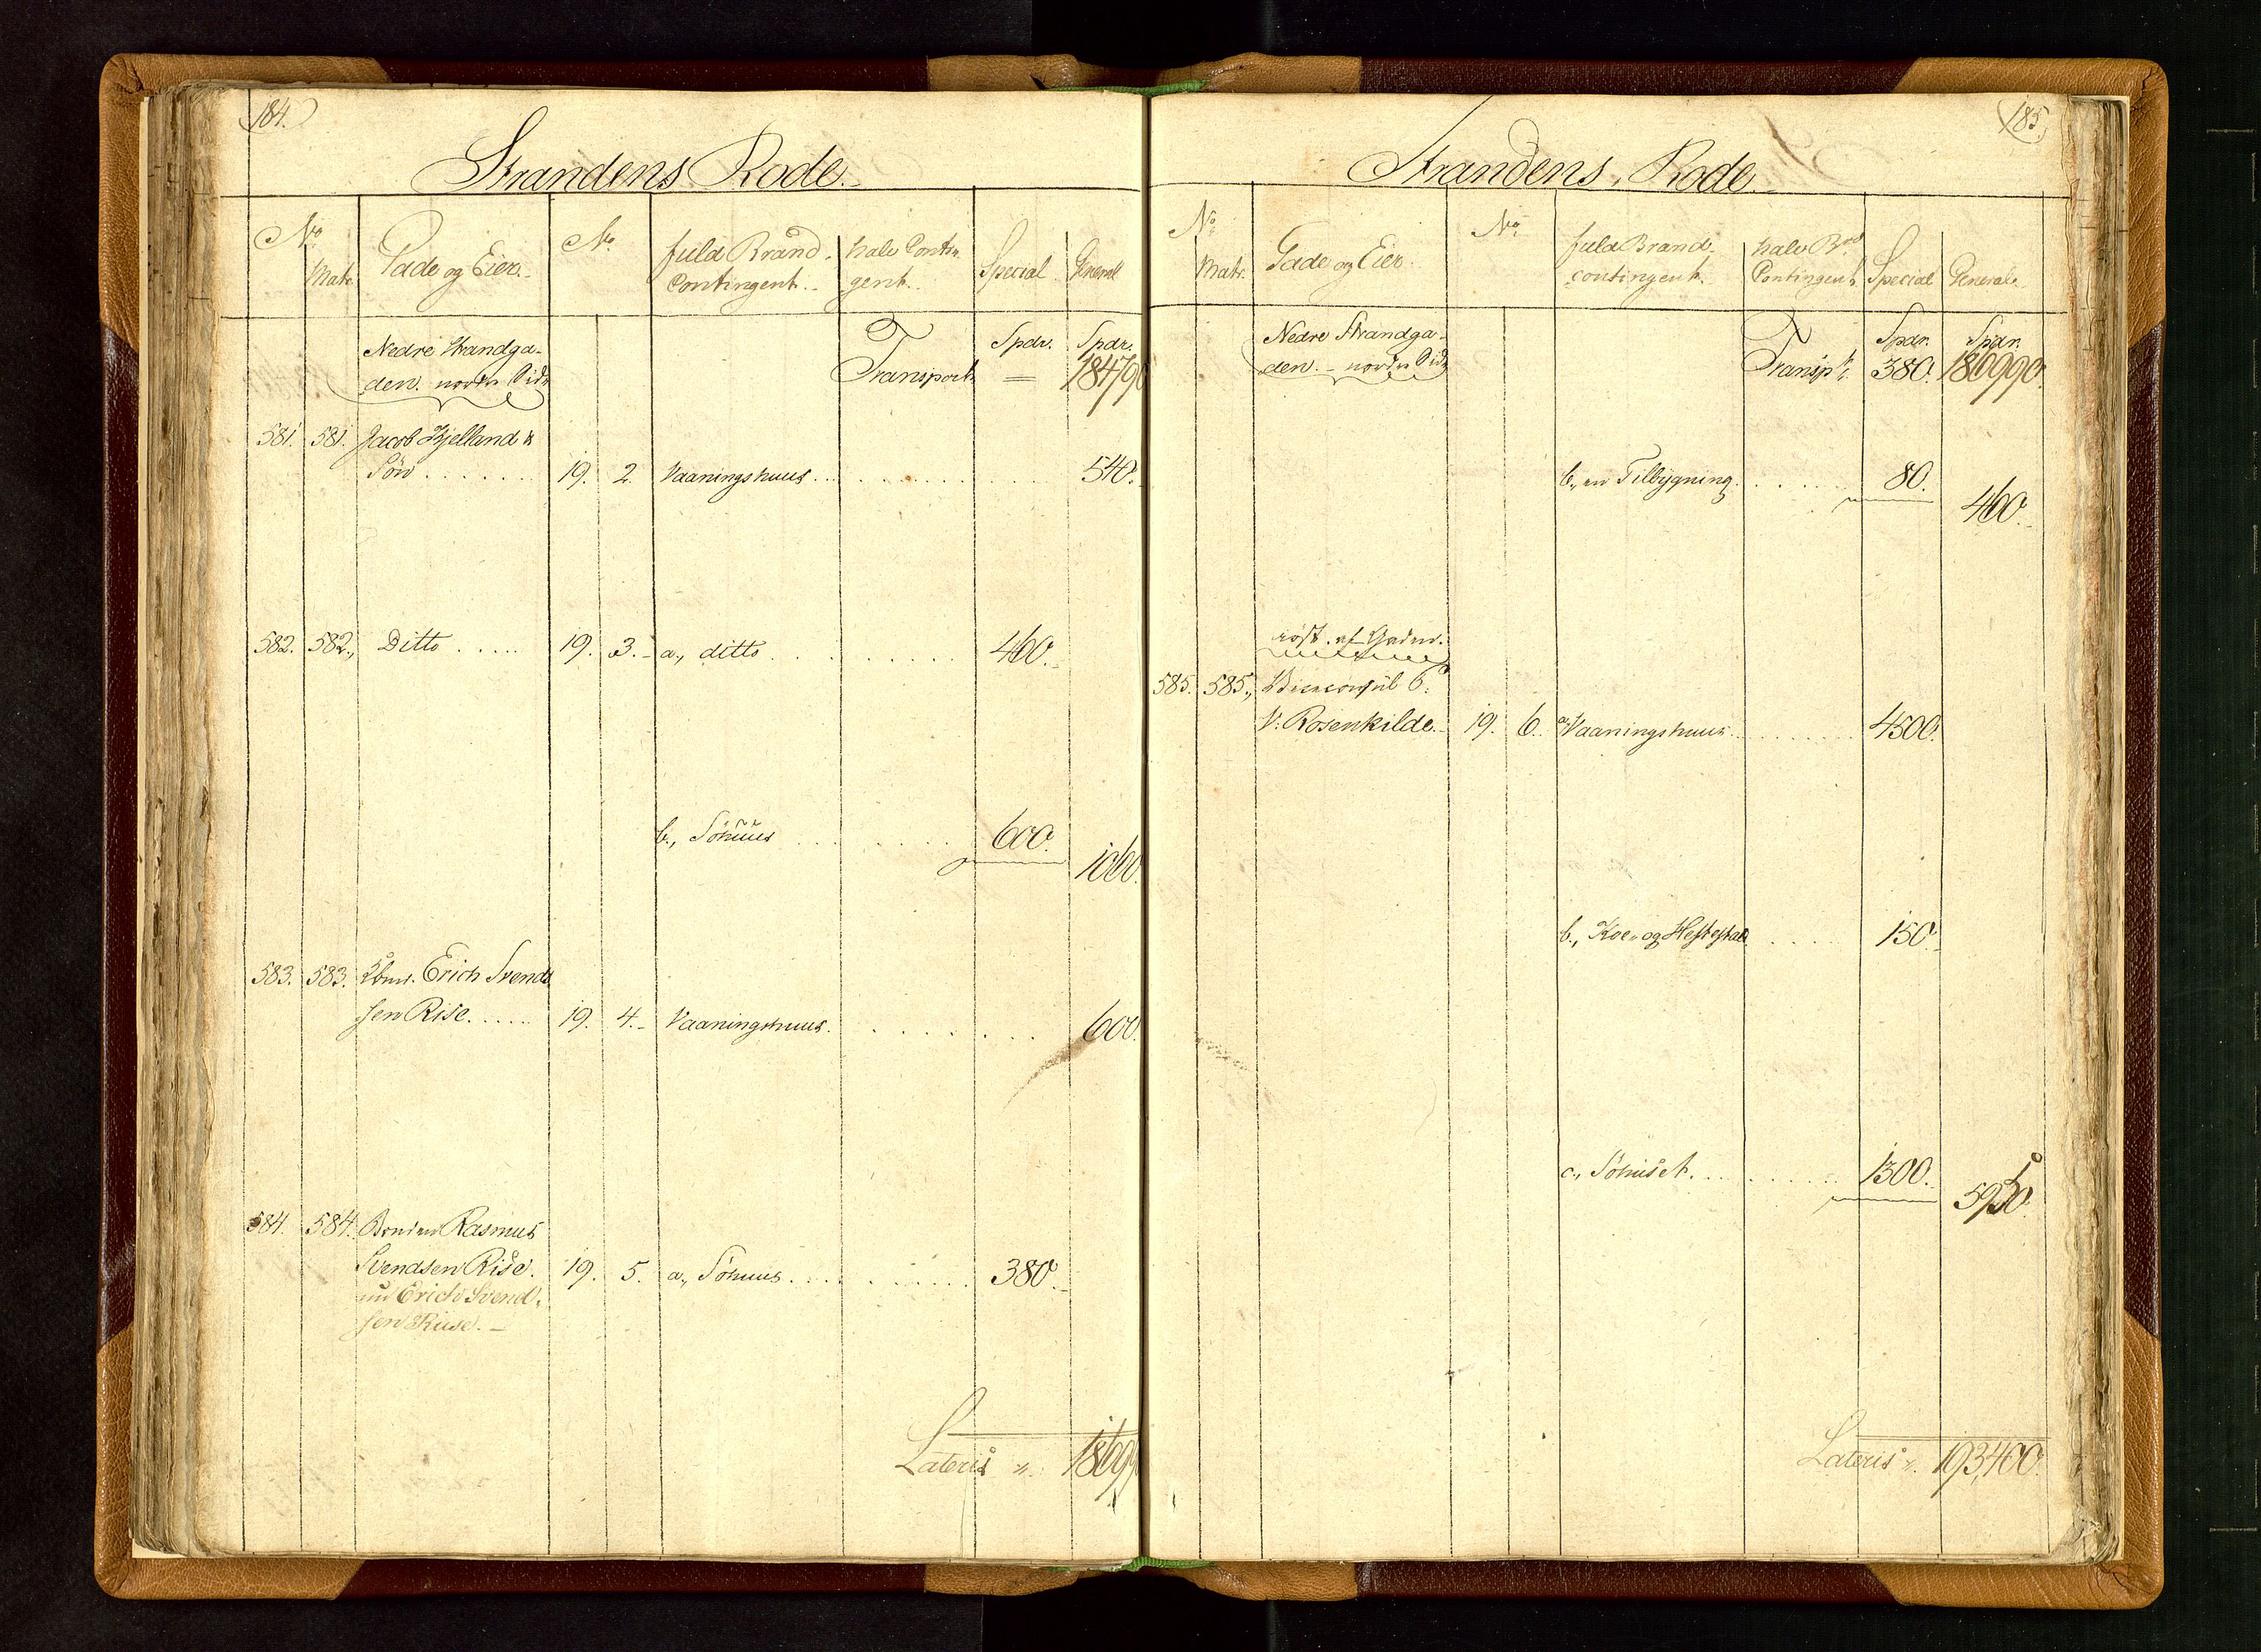 184.
Strandens Rode.
No
Matr.
Gade og Eier.
No
fuld Brand-
Contingent.
halv Contin-
gent.
Special
General
Nedre Strandga-
den. nordre Side
Transport
Spdr.
Spdr.
184790
581. 581. Jacob Kjelland &
Søn . . . . . . 19. 2. Vaaningshuus . . . . . . . . 540.
582. 582., Ditto . . . . . 19. 3. a., ditto . . . . . . . . . 460.
b., Söhuus . . . . . . . 600.
1060.
583. 583. Erich Svend-
sen Rise. . . . . 19. 4. Vaaningshuus. . . . . . . . . 600.
584. 584. Bonden Rasmus
Svendsen Rise. 19. 5. a., Söhuus. . . . . . . . . 380.
nu Erich Svend-
sen Riise.
Lateris 18699
185.
Strandens Rode.
No
Matr.
Gade og Eier.
No
fuld Brand-
contingent.
halv Brd
Contingent.
Special
General
Nedre Strandga-
den. - nordre Side
Transpt.
Spdr.
380.
Spdr.
186990.
b., en Tilbygning. . . . . . . 80.
460.
röst. af Gaden.
585. 585., Viceconsul C.
V. Rosenkilde. 19. 6. a. Vaaningshuus. . . . . . . . 4500.
b., Koe- og Hestestald . . . . . 150.
c., Söhuset. . . . . . . . . 1300.
5950.
Lateris 193,400.